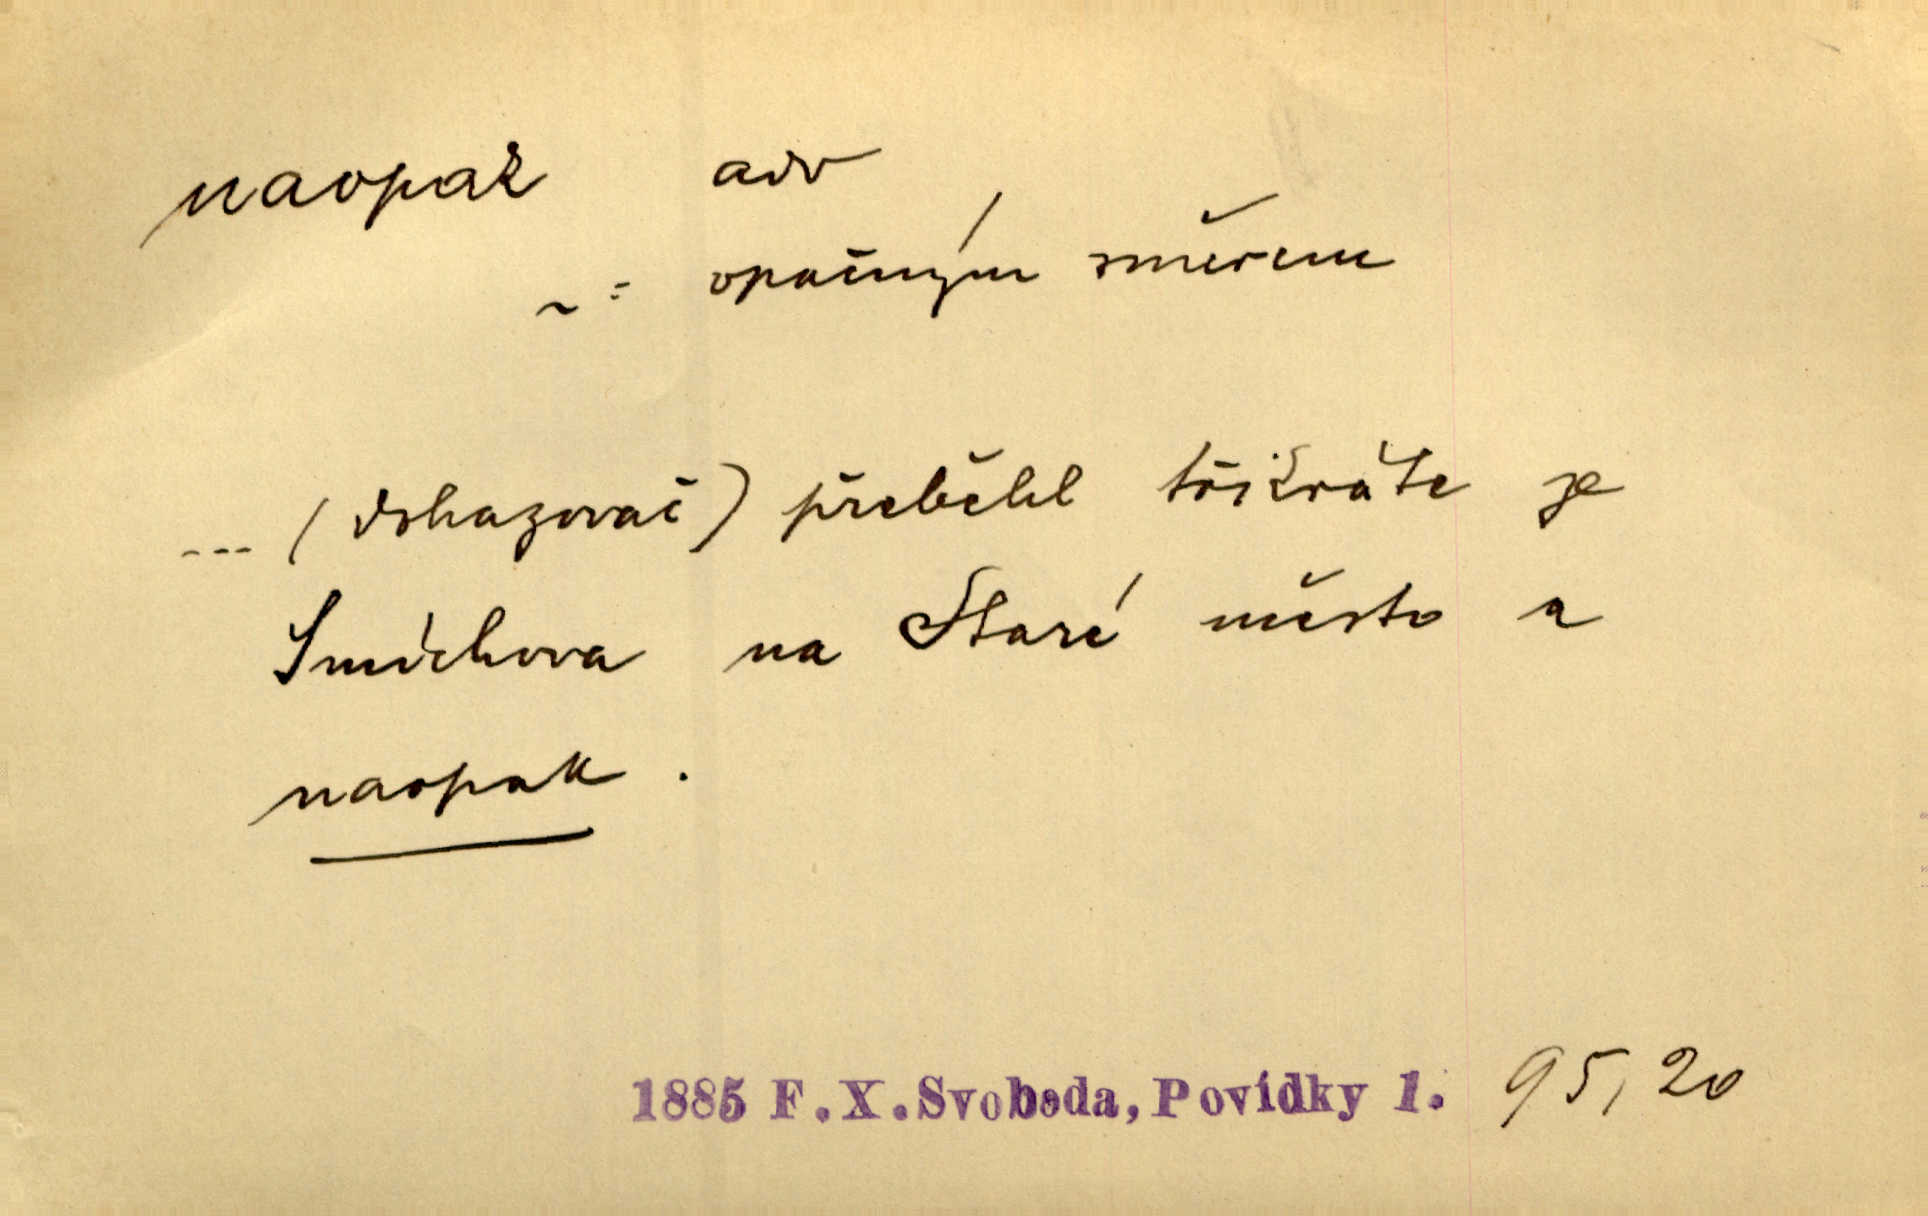 naopak adv
~ = opačným směrem
--- (dohazovač) přeběhl třikráte ze
Smíchova na Staré město a
naopak.
1885 F.X.Svoboda, Povídky 1. 95,20